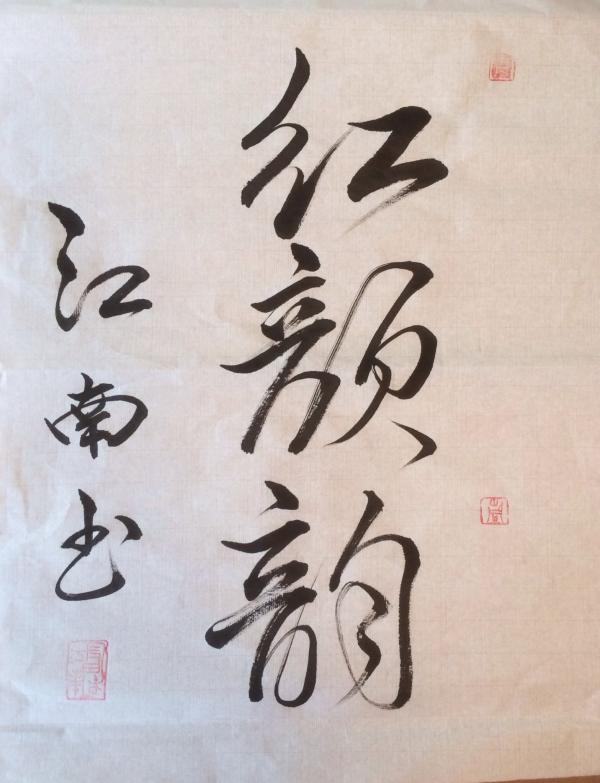 红颜韵
江南书